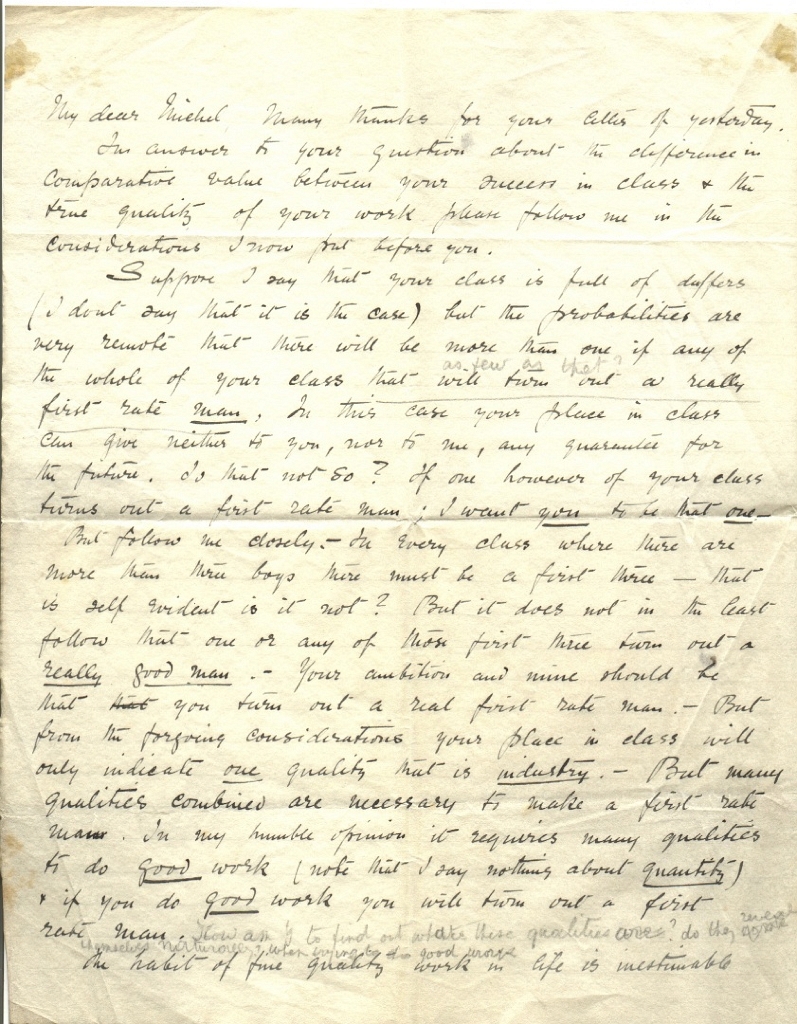 My dear Michel, Many thanks for your letter of yesterday.
In answer to your question about the difference in
comparative value between your success in class & the
true quality of your work please follow me in the
considerations I now put before you.
Suppose I say that your class is full of duffers
(I dont say that it is the case) but the probabilities are
very remote that there will be more than one if any of
as few as that?
the whole of your class that will turn out a really
first rate man. In this case your place in class
can give neither to you, nor to me, any guarantee for
the future. Is that not so? If one however of your class
turns out a first rate man; I want you to be that one—
But follow me closely.— In every class where there are
more than three boys there must be a first three — that
is self evident is it not? But it does not in the least
follow that one or any of those first three turn out a
really good man.— Your ambition and mine should be
that that you turn out a real first rate man.— But
from the forgoing considerations your place in class will
only indicate one quality that is industry.— But many
qualities combined are necessary to make a first rate
man. In my humble opinion it requires many qualities
to do good work (note that I say nothing about quantity)
& if you do good work you will turn out a first
rate man. How am I to find out what these qualities are? do they
themselves when trying to do good work
The habit of fine quality work in life is inestimable